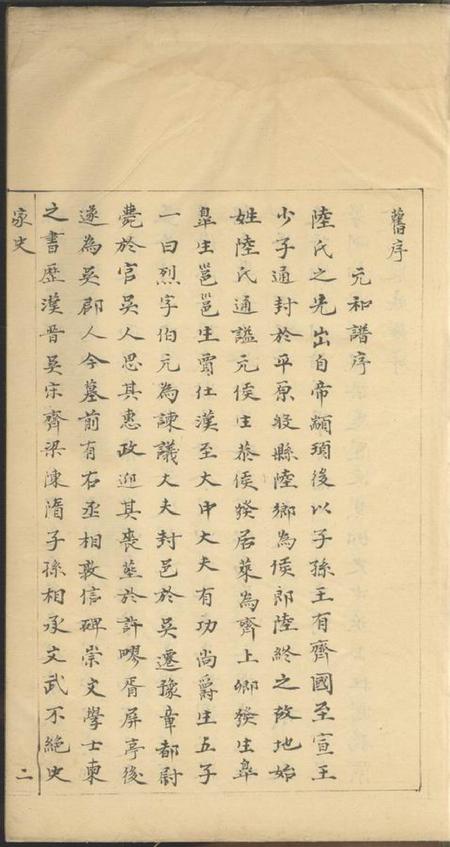 舊序
元和譜序
陸氏之先出自帝顓頊後以子孫王有齊國至宣王
少子通封於平原般縣陸鄉為侯郎陸終之故地始
姓陸氏通謚元侯生恭侯發居萊為齊上卿發生皐
皐生邕邕生賈仕漢至大中大夫有功尚爵生五子
一曰烈字伯元為諫議大夫封邑於吳遷豫章都尉
薨於官吳人思其惠政迎其喪塟於許㻱胥屏亭後
遂為吳郡人今墓前有右丞相敦信碑崇文學士柬
之書歷漢晉吳宋齊梁陳隋子孫相承文武不絕史
家史
二